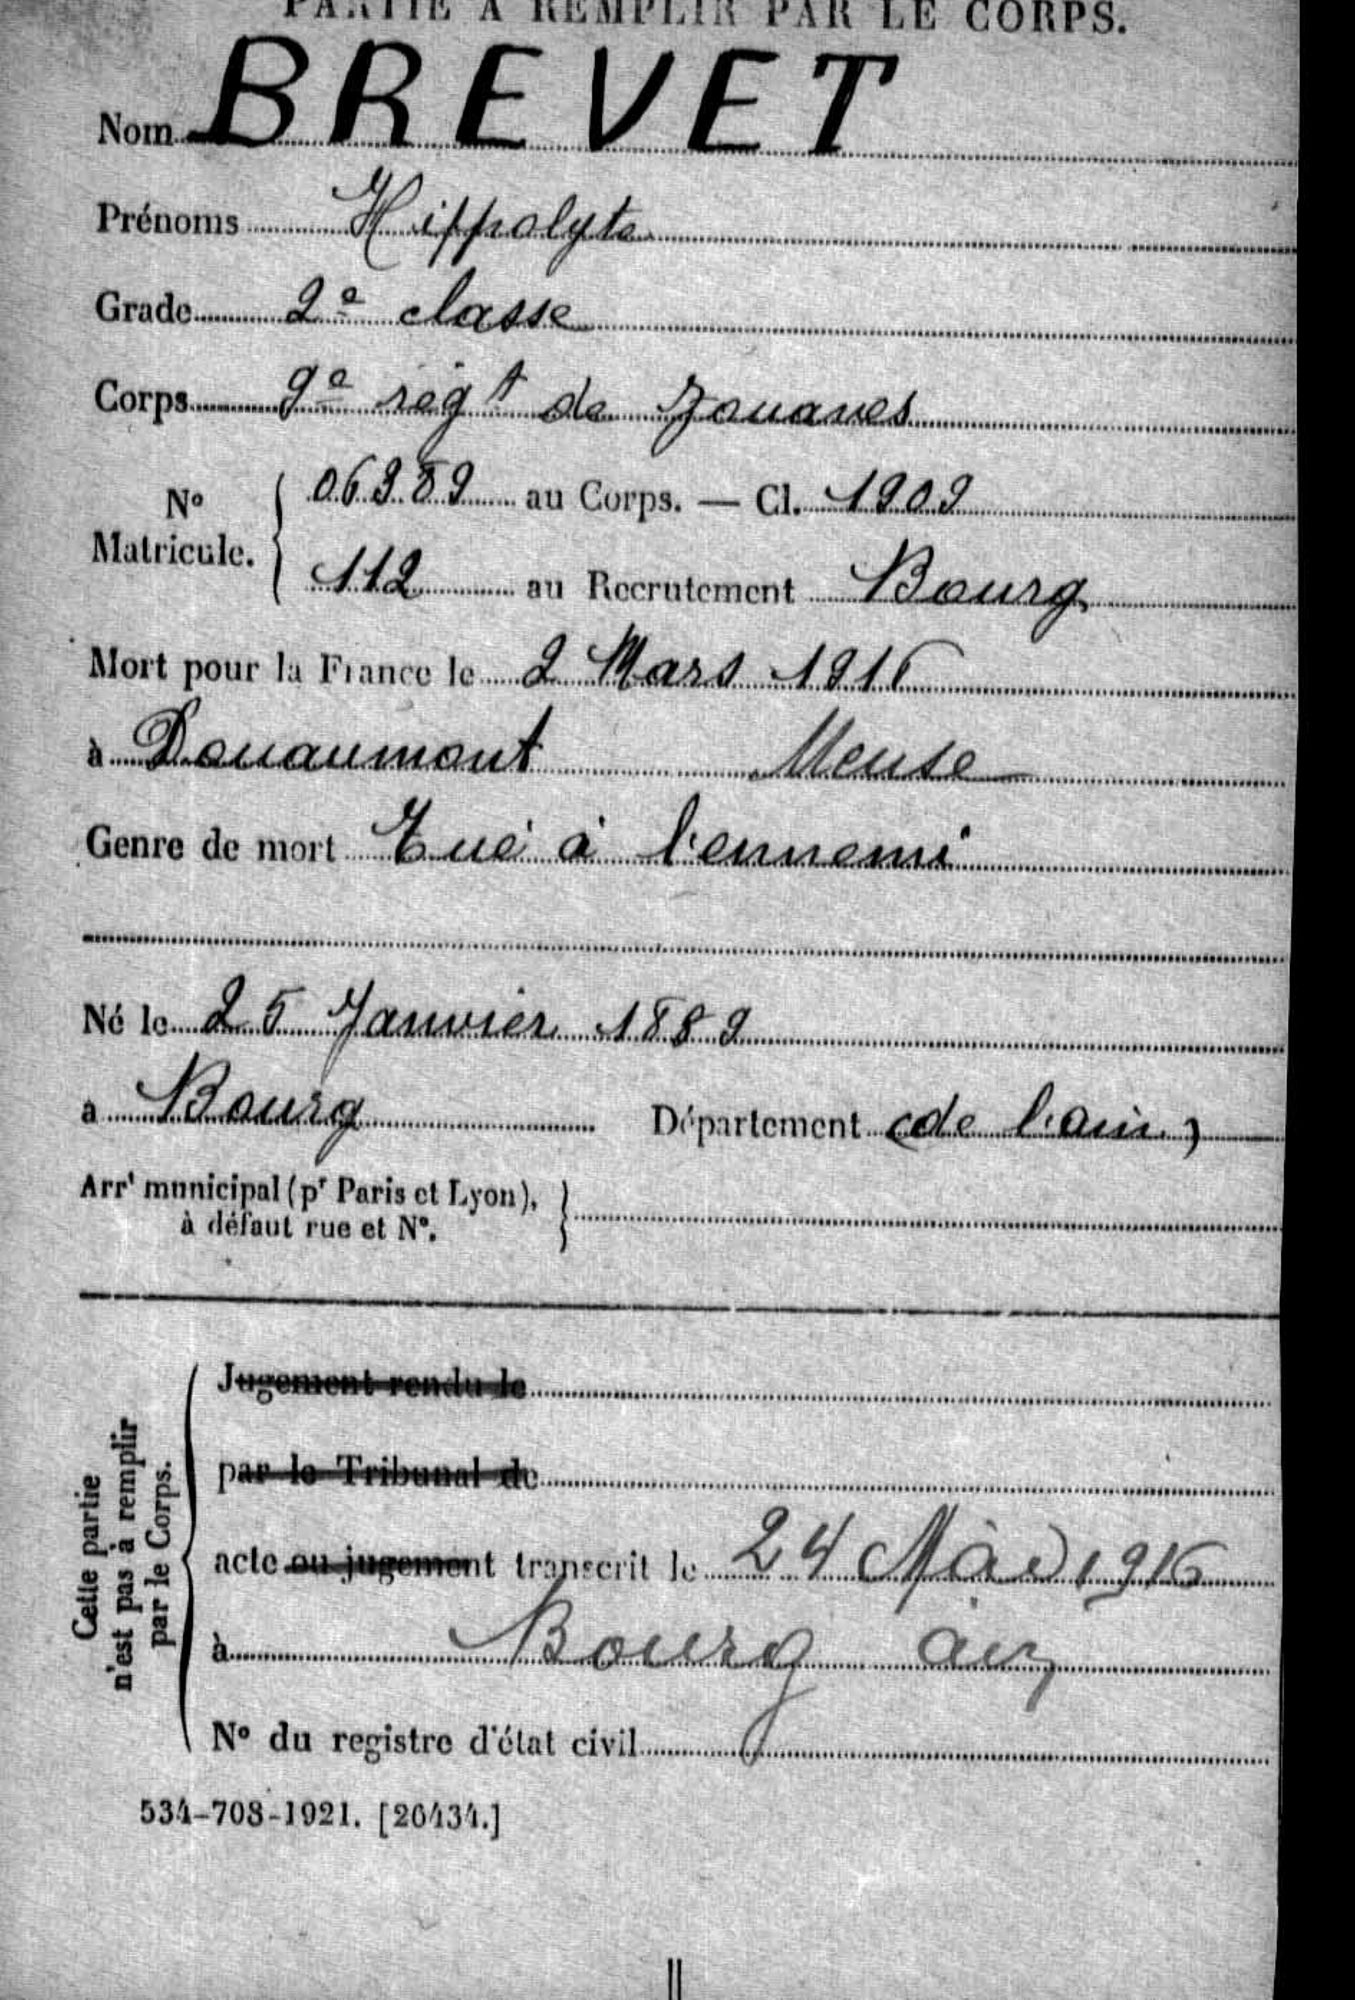 PARTIE A REMPLIR PAR LE CORPS.
Nom BREVET
Prénoms Hippolyte
Grade 2e classe
Corps 9e régt de zouaves
No Matricule. { 06989 au Corps. — Cl. 1909
112 au Recrutement Bourg
Mort pour la France le 2 Mars 1916
à Douaumont Meuse
Genre de mort Tué à l'ennemi
Né le 25 Janvier 1889
à Bourg Département (de l'ain)
Arrt municipal (pr Paris et Lyon), }
à défaut rue et No.
Cette partie
n'est pas à remplir
par le Corps.
Jugement rendu le
par le Tribunal de
acte ou jugement transcrit le 24 Mai 1916
à Bourg ain
No du registre d'état civil
534-708-1921. [26434.]